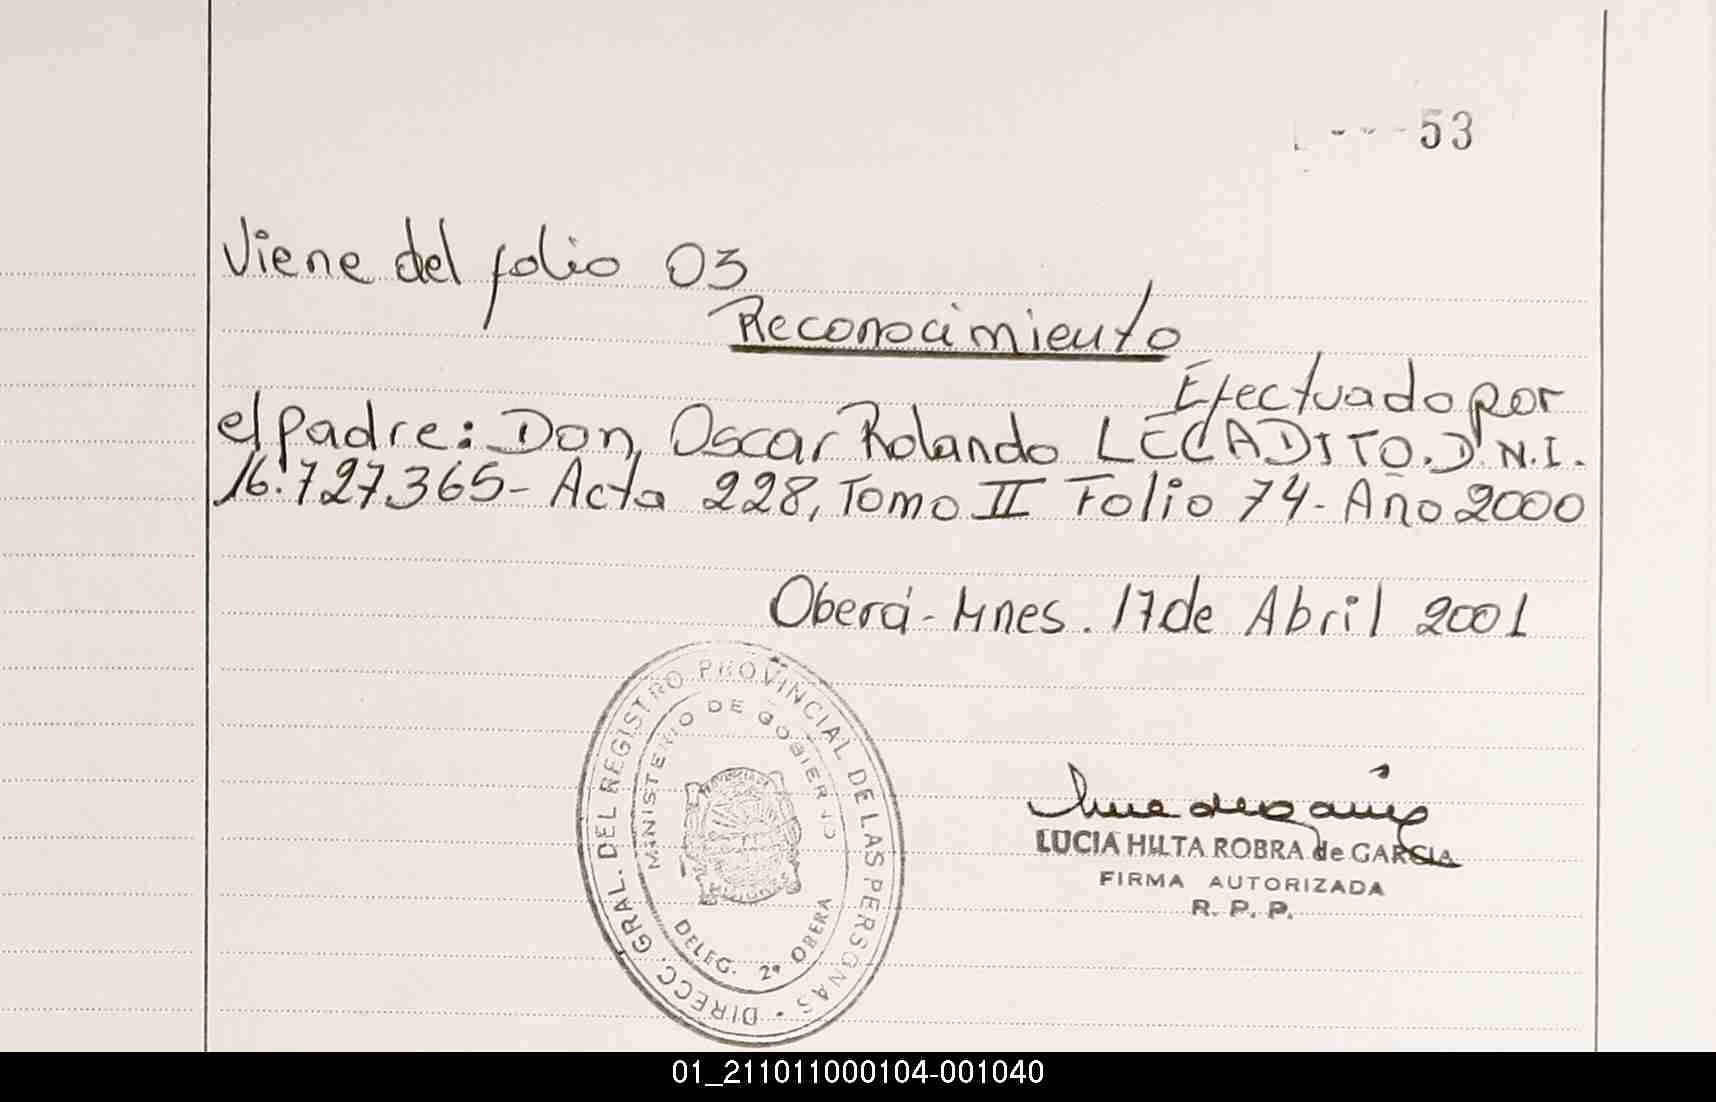 53
Viene del folio 03
Reconocimiento
Efectuado por
el padre: Don, Oscar Rolando LECADITO. D.N.I.
16.727.365- Acta 228, Tomo II Folio 74- Año 2000
Oberá - Mnes. 17 de Abril 2001
DIRECC. GRAL. DEL REGISTRO PROVINCIAL DE LAS PERSONAS
MINISTERIO DE GOBIERNO
DELEG. 2ª OBERA
LUCIA HILTA ROBRA de GARCIA
FIRMA AUTORIZADA
R. P. P.
01_211011000104-001040